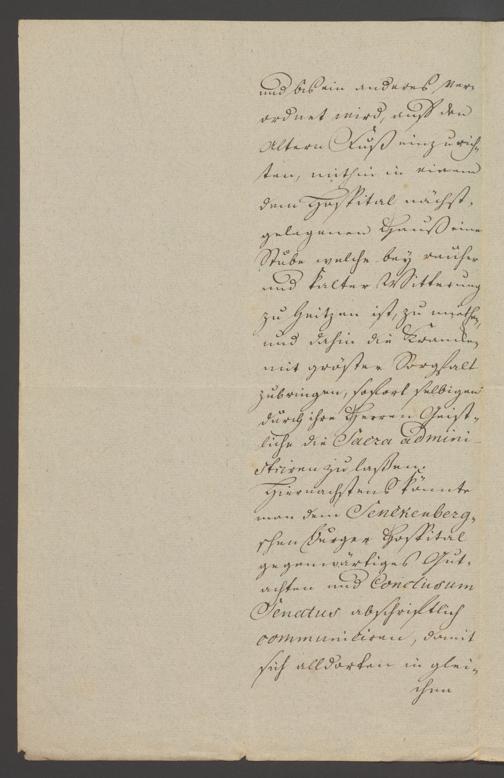 und bis ein anderes ver-
ordnet wird, auf den
Altern Fuß einzurich-
ten, mithin in einem
dem Hospital nächst-
gelegenen Hauß eine
Stube welche bey rauher
und kalter Witterung
zu heitzen ist, zu miethen,
und dahin die Krancken
mit gröster Sorgfalt
zubringen, sofort selbigen
durch ihre Herren Geist-
liche die Sacra admini-
striren zu laßen.
Hiernächstens könnte
man dem Senckenberg-
schen Burger Hospital
gegenwärtiges Gut-
achten und Conclusum
Senatus abschriftlich
communiciren, damit
sich alldorten in glei-
chen